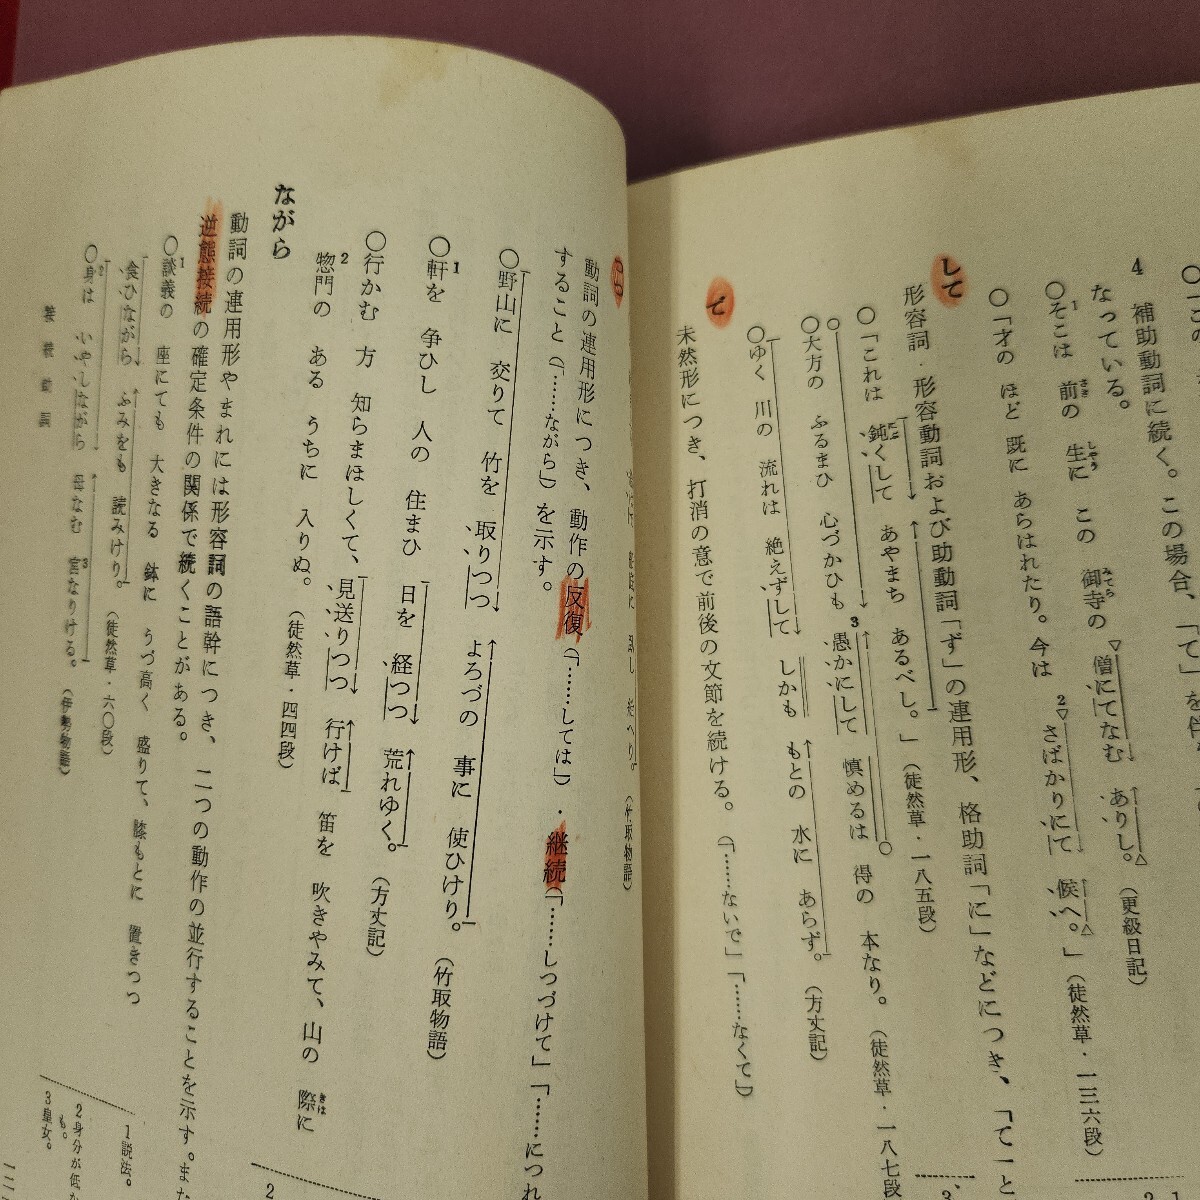 4 補助動詞に続く。この場合、「て」を伴
なっている。
○そこは 前の 生に この 御寺の 僧にてなむ ありし。(更級日記)
○「才の ほど 既に あらはれたり。今は さばかりにて 候へ。」(徒然草・一三六段)
して
形容詞・形容動詞および助動詞「ず」の連用形、格助詞「に」などにつき、「て」と
○「これは 鈍くして あやまち あるべし。」(徒然草・一八五段)
○大方の ふるまひ 心づかひも 愚かにして 慎めるは 得の 本なり。(徒然草・一八七段
○ゆく 川の 流れは 絶えずして しかも もとの 水に あらず。(方丈記)
で
未然形につき、打消の意で前後の文節を続ける。(「……ないで」「……なくて」)
(竹取物語)
つつ
動詞の連用形につき、動作の反復(「……しては」)・継続(「……しつづけて」「……につれ
すること(「……ながら」)を示す。
○野山に 交りて 竹を 取りつつ よろづの 事に 使ひけり。(竹取物語)
○軒を 争ひし 人の 住まひ 日を 経つつ 荒れゆく。(方丈記)
○行かむ 方 知らまほしくて、見送りつつ 行けば 笛を 吹きやみて、山の 際に
惣門の ある うちに 入りぬ。(徒然草・四四段)
ながら
動詞の連用形やまれには形容詞の語幹につき、二つの動作の並行することを示す。また
逆態接続の確定条件の関係で続くことがある。
○談義の 座にても 大きなる 鉢に うづ高く 盛りて、膝もとに 置きつつ
食ひながら ふみをも 読みけり。(徒然草・六〇段)
○身は いやしながら 母なむ 宮なりける。(伊勢物語)
接続助詞
1説法。
2身分が低
も。
3皇女。